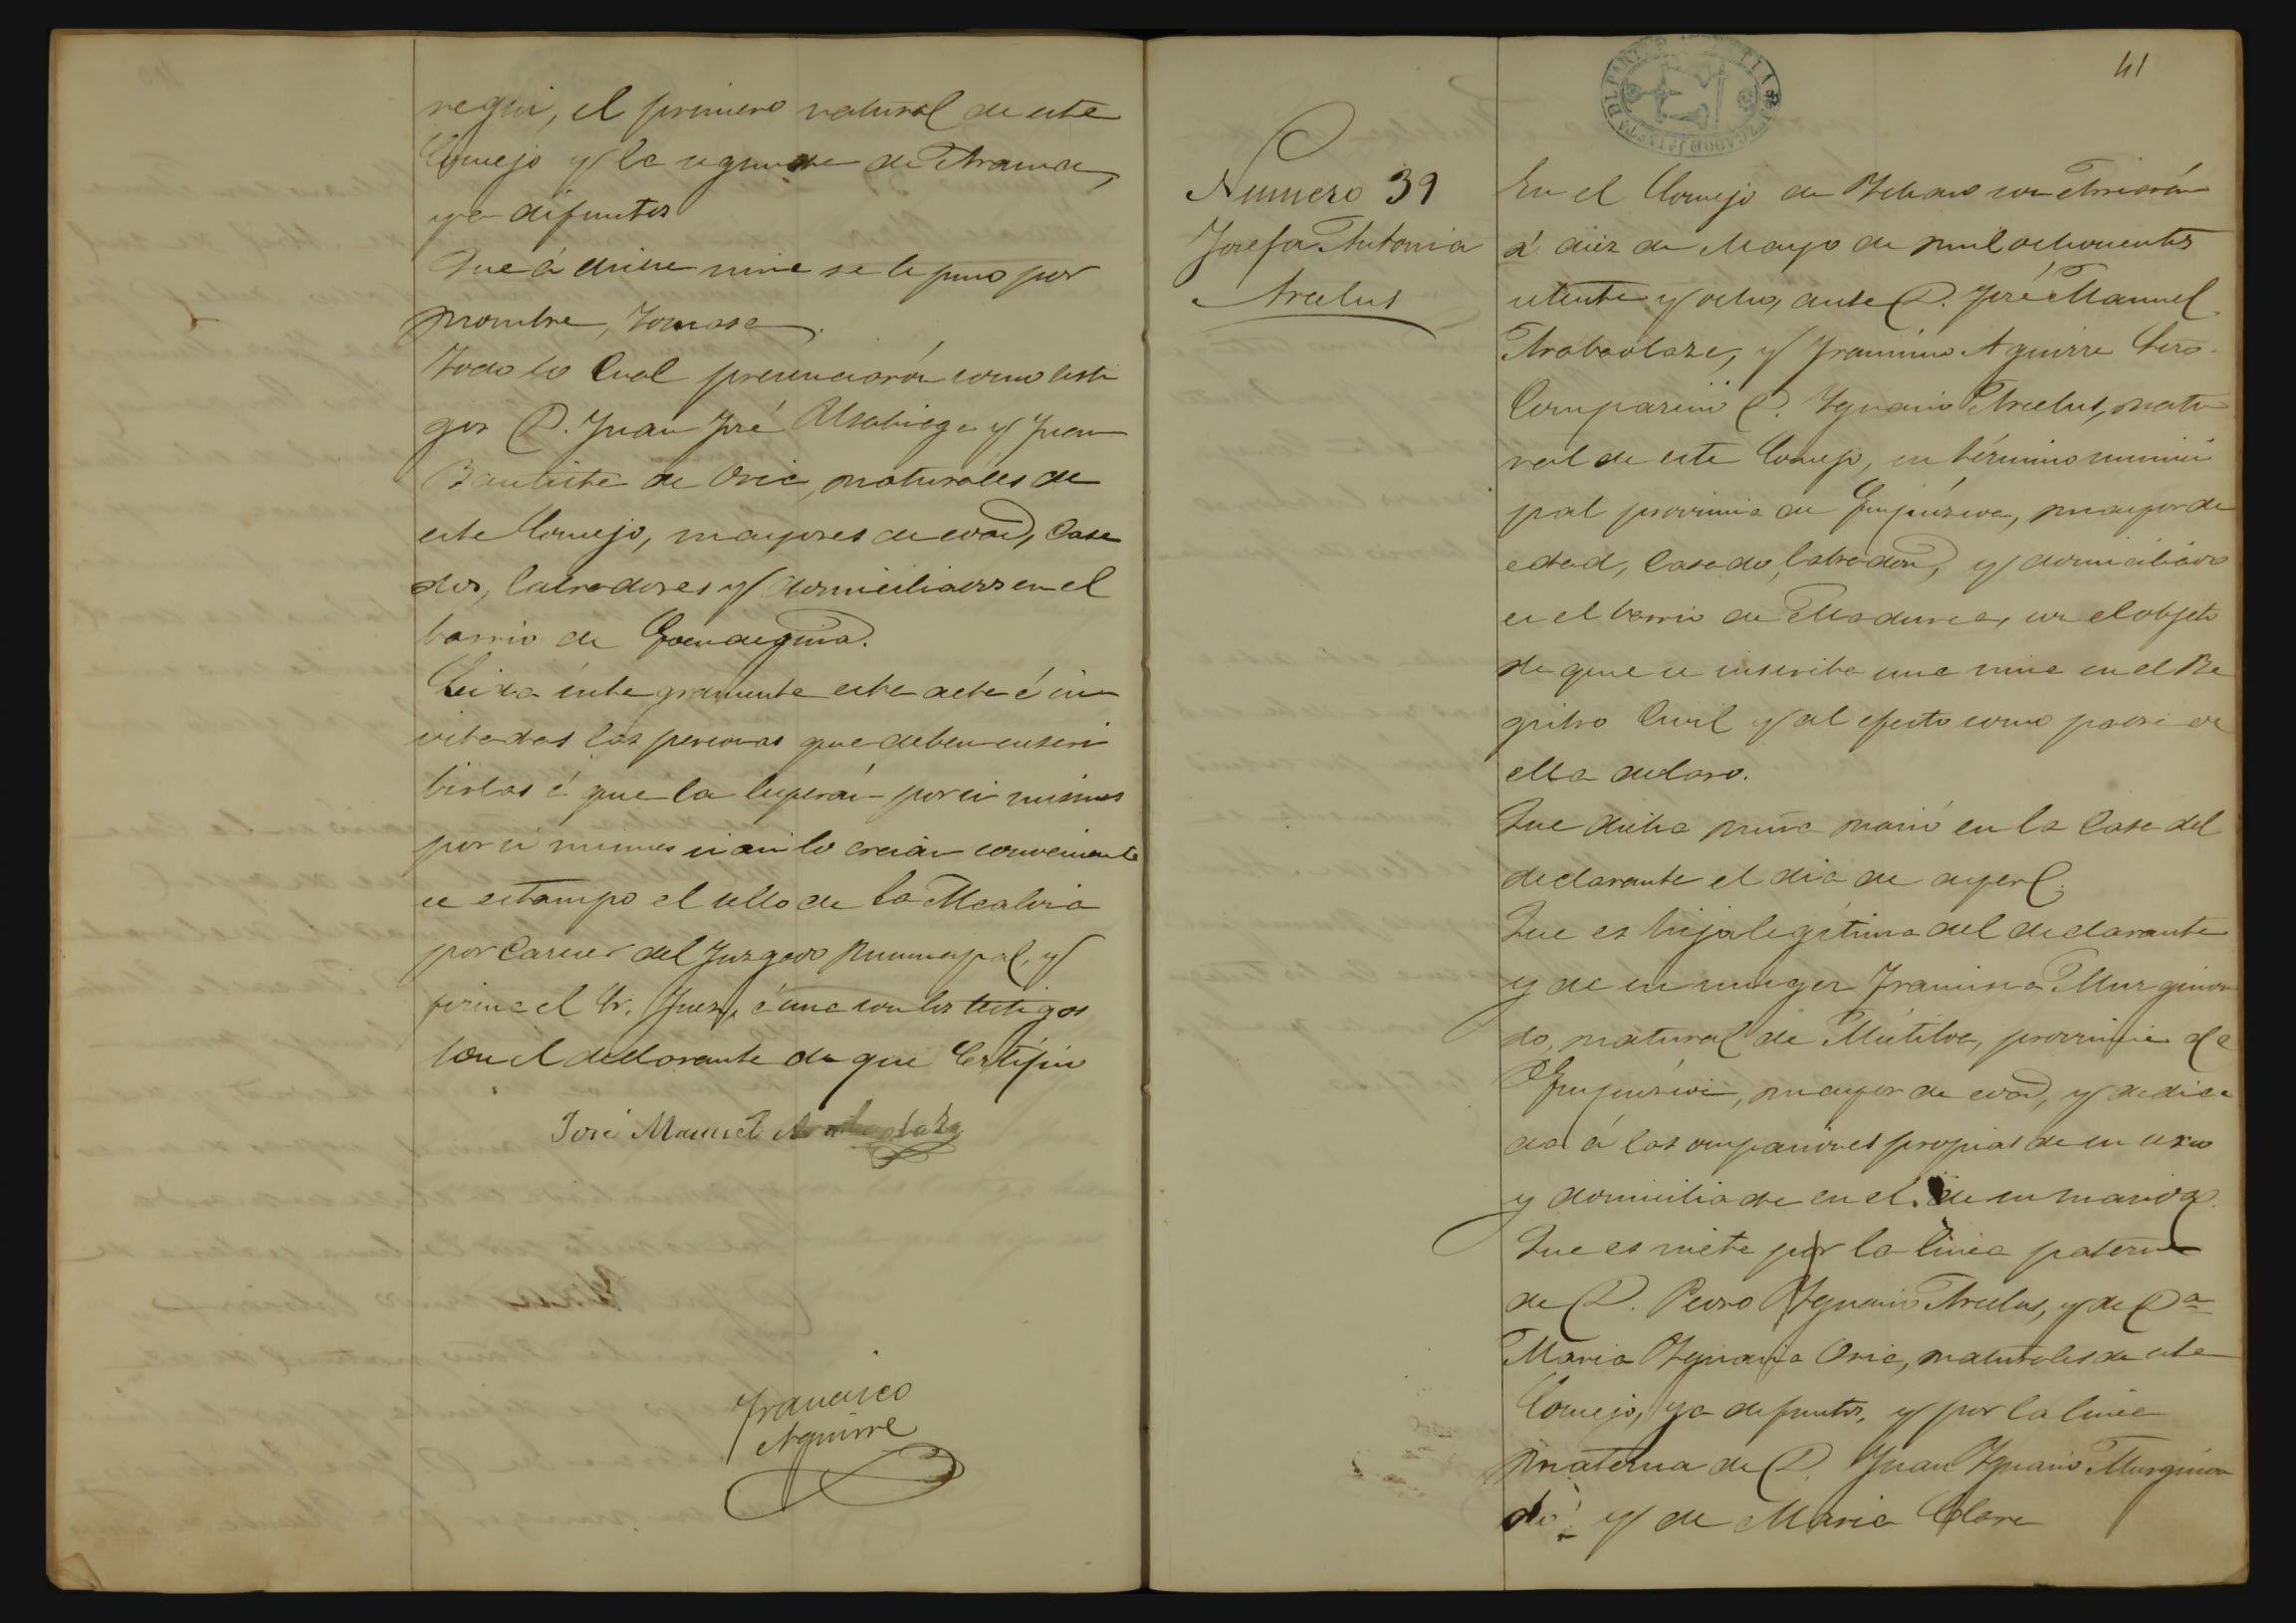 regui, el primero natural de este
Concejo y la segunda de Arama,
ya difuntos
Que á dicha niña se le puso por
nombre, Tomasa.
Todo lo Cual presenciarón como testi
gos D. Juan José Alsabiega y Juan
Bautista de Oria, naturales de
este Concejo, mayores de edad, Casa
dos, labradores y domiciliados en el
barrio de Goendegina.
Leida integramente esta acta é in
vitadas las personas que deben suscri
birlas é que la leyerán por si mismos
por si mismos si asi lo creian conveniente
se estampo el sello de la Alcaldia
por Carecer del Juzgado Municipal, y
firma el Sr. Juez, é una con los testigos
con el declarante de que Certifico
José Manuel
Francisco
Aguirre
41
Numero 39
Josefa Antonia
Arcelus
En el Concejo de Ichaso con Arriarán
á diez de Mayo de mil ochocientos
setenta y ocho, ante D. José Manuel
Arabaolaza, y Francisco Aguirre Srio.
Compareció D. Ygnacio Arcelus, natu
ral de este Concejo, su término munici
pal provincia de Guipúzcoa, mayor de
edad, Casado, labrador, y domiciliado
en el barrio de Maduria, con el objeto
de que se inscriba una niña en el Re
gistro Civil y al efecto como padre de
ella declaro.
Que dicha niña nació en la Casa del
declarante el dia de ayer.
Que es hija legitima del declarante
y de su muger Francisca Murgiion
do, natural de Mutiloa, provincia de
Guipuzcoa, mayor de edad, y dedica
da á las ocupaciones propias de su sexo
y domiciliada en el de su marido
Que es nieta por la linea paterna
de D. Pedro Ygnacio Arcelus, y de Da
Maria Ygnacia Oria, naturales de este
Concejo, ya difuntos, y por la linea
materna de D. Juan Ygnacio Murguion
do y de Maria Clara